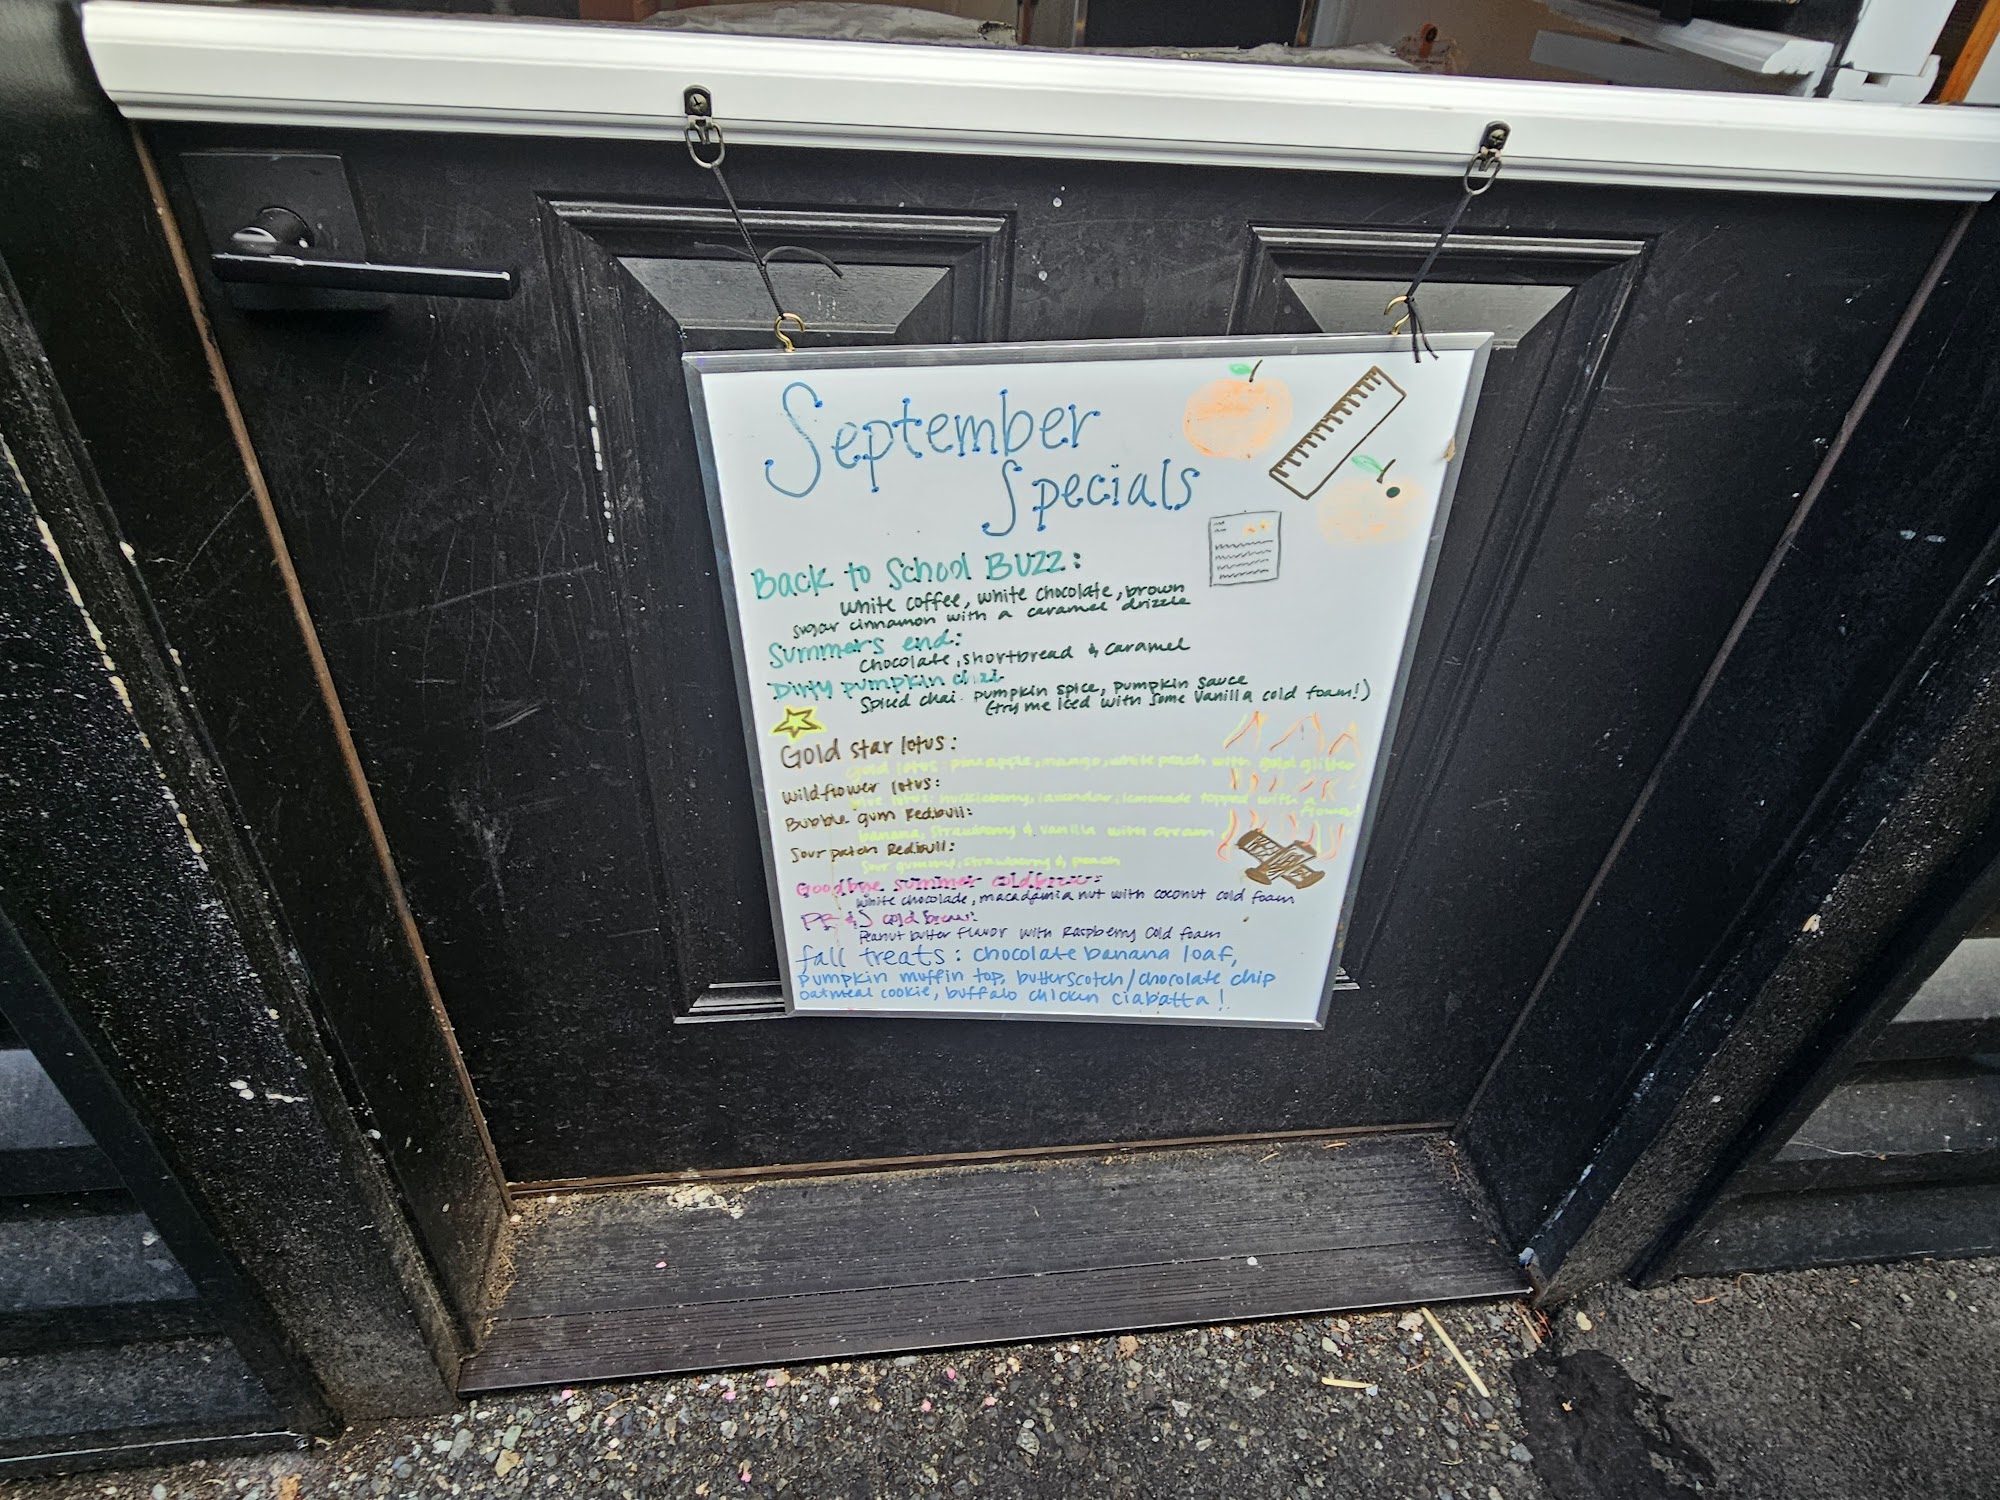 September
Specials
Back to School BUZZ:
white coffee, white chocolate, brown
sugar cinnamon with a caramel drizzle
Summers end:
chocolate, shortbread & caramel
Dirty pumpkin chai
Spiced chai. pumpkin spice, pumpkin sauce
(try me iced with some vanilla cold foam!)
Gold star lotus:
gold lotus: pineapple, mango, white peach with gold glitter
Wildflower lotus:
blue lotus: huckleberry, lavendar, lemonade topped with a
flower!
Bubble gum Redbull:
banana, strawberry & vanilla with cream
Sour patch Redbull:
Sour gummy, strawberry & peach
Goodbye summer coldbrew:
white chocolade, macadamia nut with coconut cold foam
PB & J cold brew:
Peanut butter flavor with Raspberry cold foam
fall treats: chocolate banana loaf,
pumpkin muffin top, butterscotch/chocolate chip
oatmeal cookie, buffalo chicken ciabatta!